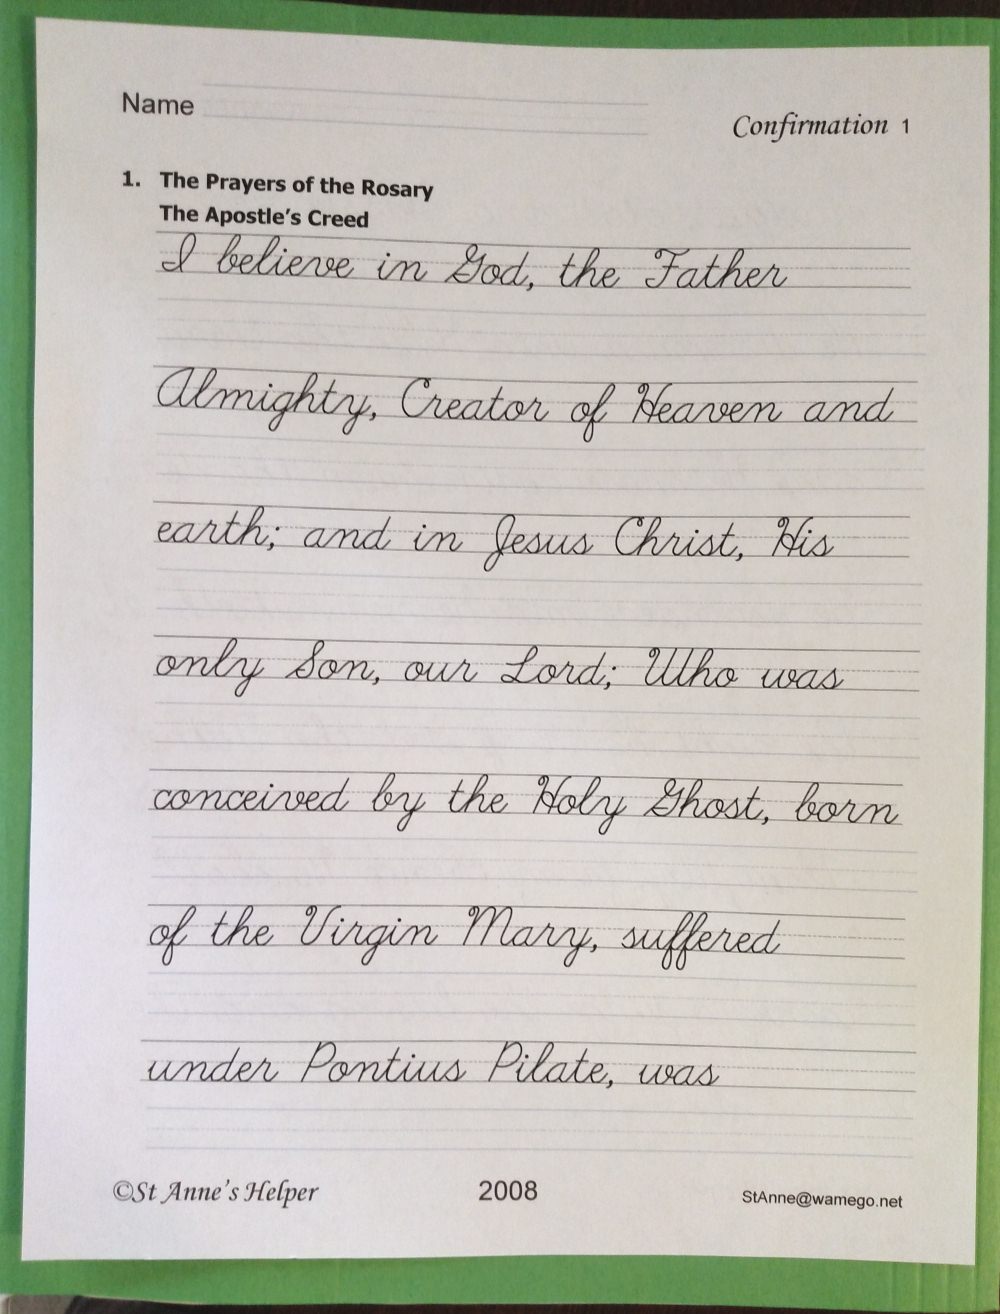 Name
Confirmation 1
1. The Prayers of the Rosary
The Apostle's Creed
I believe in God, the Father
Almighty, Creator of Heaven and
earth; and in Jesus Christ, His
only Son, our Lord; Who was
conceived by the Holy Ghost, born
of the Virgin Mary, suffered
under Pontius Pilate, was
©St Anne's Helper
2008
StAnne@wamego.net